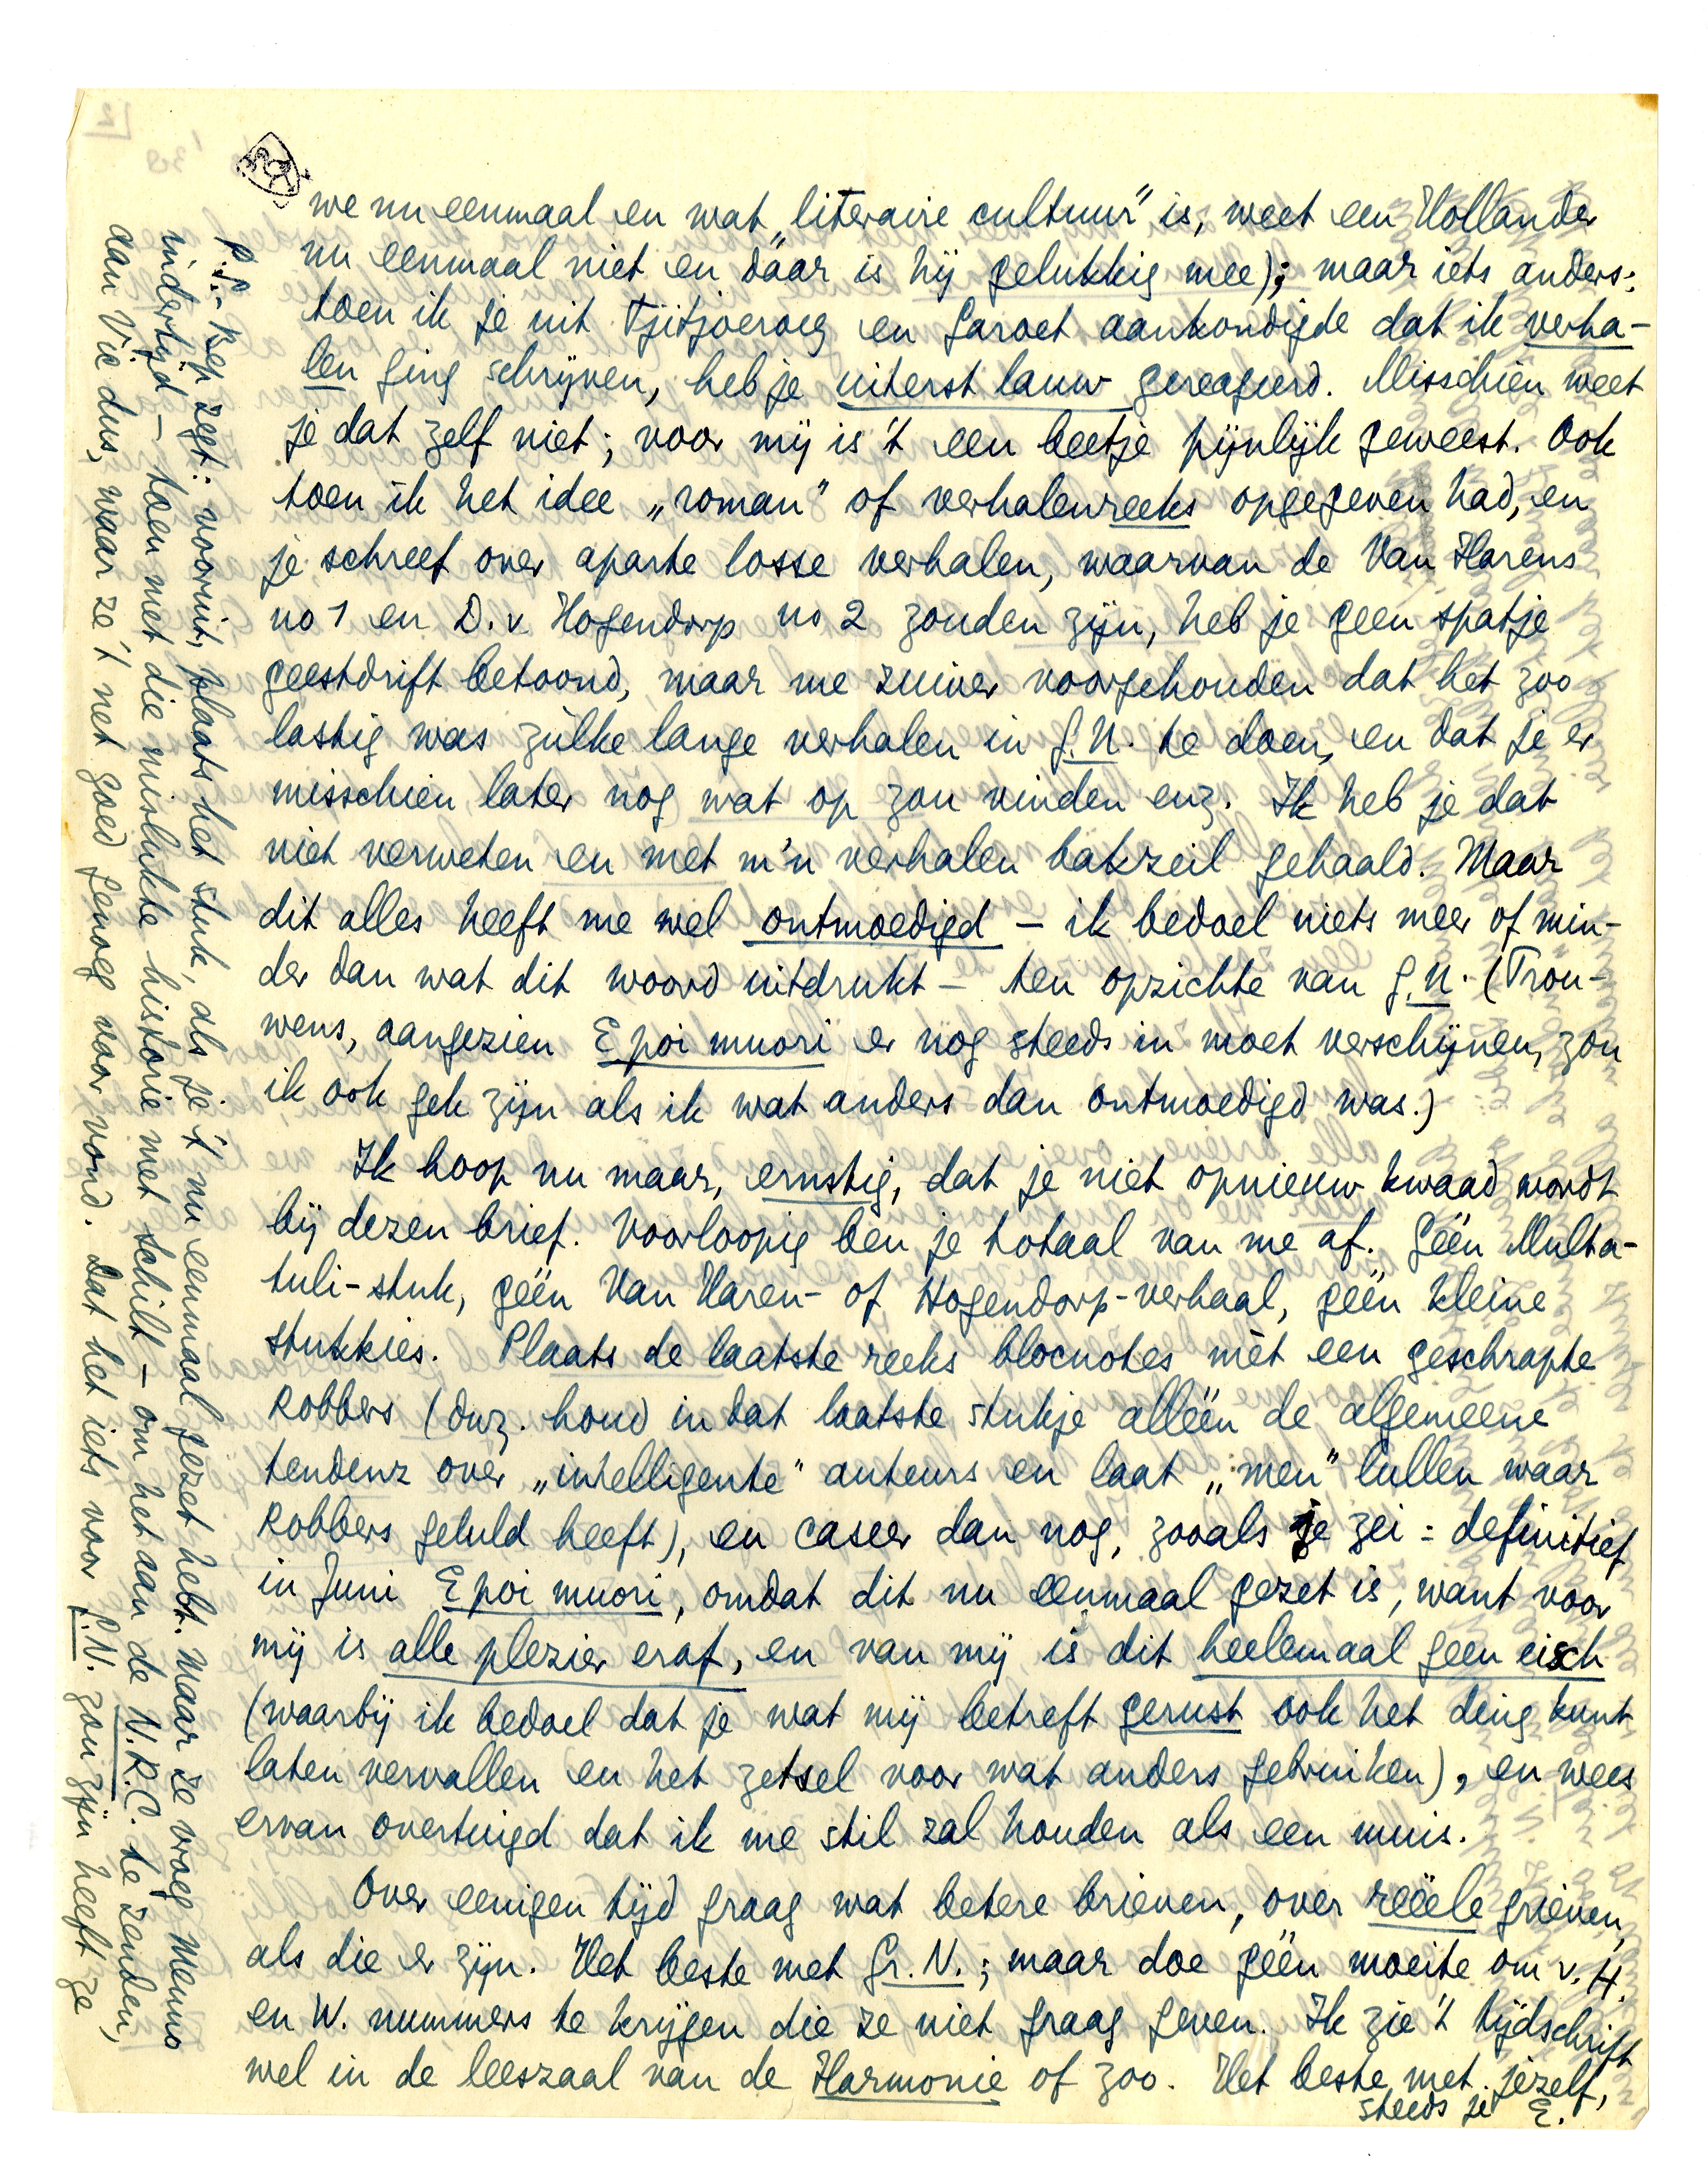 we nu eenmaal en wat „literaire cultuur” is, weet een Hollander
nu eenmaal niet en dáár is hij gelukkig mee); maar iets anders:
toen ik je uit Tjitjoeroeg en Garoet aankondigde dat ik verha-
len ging schrijven, heb je uiterst lauw gereageerd. Misschien weet
je dat zelf niet; voor mij is 't een beetje pijnlijk geweest. Ook
toen ik het idee „roman” of verhalenreeks opgegeven had, en
je schreef over aparte losse verhalen, waarvan de Van Harens
no 1 en D. v. Hogendorp no 2 zouden zijn, heb je geen spatje
geestdrift betoond, maar me zuiver voorgehouden dat het zoo
lastig was zùlke lange verhalen in G.N. te doen, en dat je er
misschien later nog wat op zou vinden enz. Ik heb je dat
niet verweten en met m'n verhalen bakzeil gehaald. Maar
dit alles heeft me wel ontmoedigd – ik bedoel niets meer of min-
der dan wat dit woord uitdrukt – ten opzichte van G.N. (Trou-
wens, aangezien E poi muori er nog steeds in moet verschijnen, zou
ik ook gek zijn als ik wat anders dan ontmoedigd was.)
Ik hoop nu maar, ernstig, dat je niet opnieuw kwaad wordt
bij dezen brief. Voorloopig ben je totaal van me af. Géén Multa-
tuli-stuk, géén Van Haren- of Hogendorp-verhaal, géén kleine
stukkies. Plaats de laatste reeks blocnotes mèt een geschrapte
Robbers (dwz. houd in dat laatste stukje alléén de algemeene
tendenz over „intelligente” auteurs en laat „men” lullen waar
Robbers geluld heeft), en caseer dan nog, zooals je zei: definitief
in Juni E poi muori, omdat dit nu eenmaal gezet is, want voor
mij is alle plezier eraf, en van mij is dit heelemaal geen eisch
(waarbij ik bedoel dat je wat mij betreft gerust ook het ding kunt
laten vervallen en het zetsel voor wat anders gebruiken), en wees
ervan overtuigd dat ik me stil zal houden als een muis.
Over eenigen tijd graag wat betere brieven, over reëele grieven,
als die er zijn. Het beste met Gr. N.; maar doe géén moeite om v. H.
en W. nummers te krijgen die ze niet graag geven. Ik zie 't tijdschrift
wel in de leeszaal van de Harmonie of zoo. Het beste met jezelf,
steeds je E.
P.S. – Bep zegt: vooruit, plaats het stuk, als je 't nu eenmaal gezet hebt. Maar ze vroeg Menno
indertijd – toen met die mislukte historie met Schilt – om het aan de N.R.C. te zenden,
aan Vic dus, waar ze 't net goed genoeg voor vond. Dat het iets voor G.N. zou zijn heeft ze